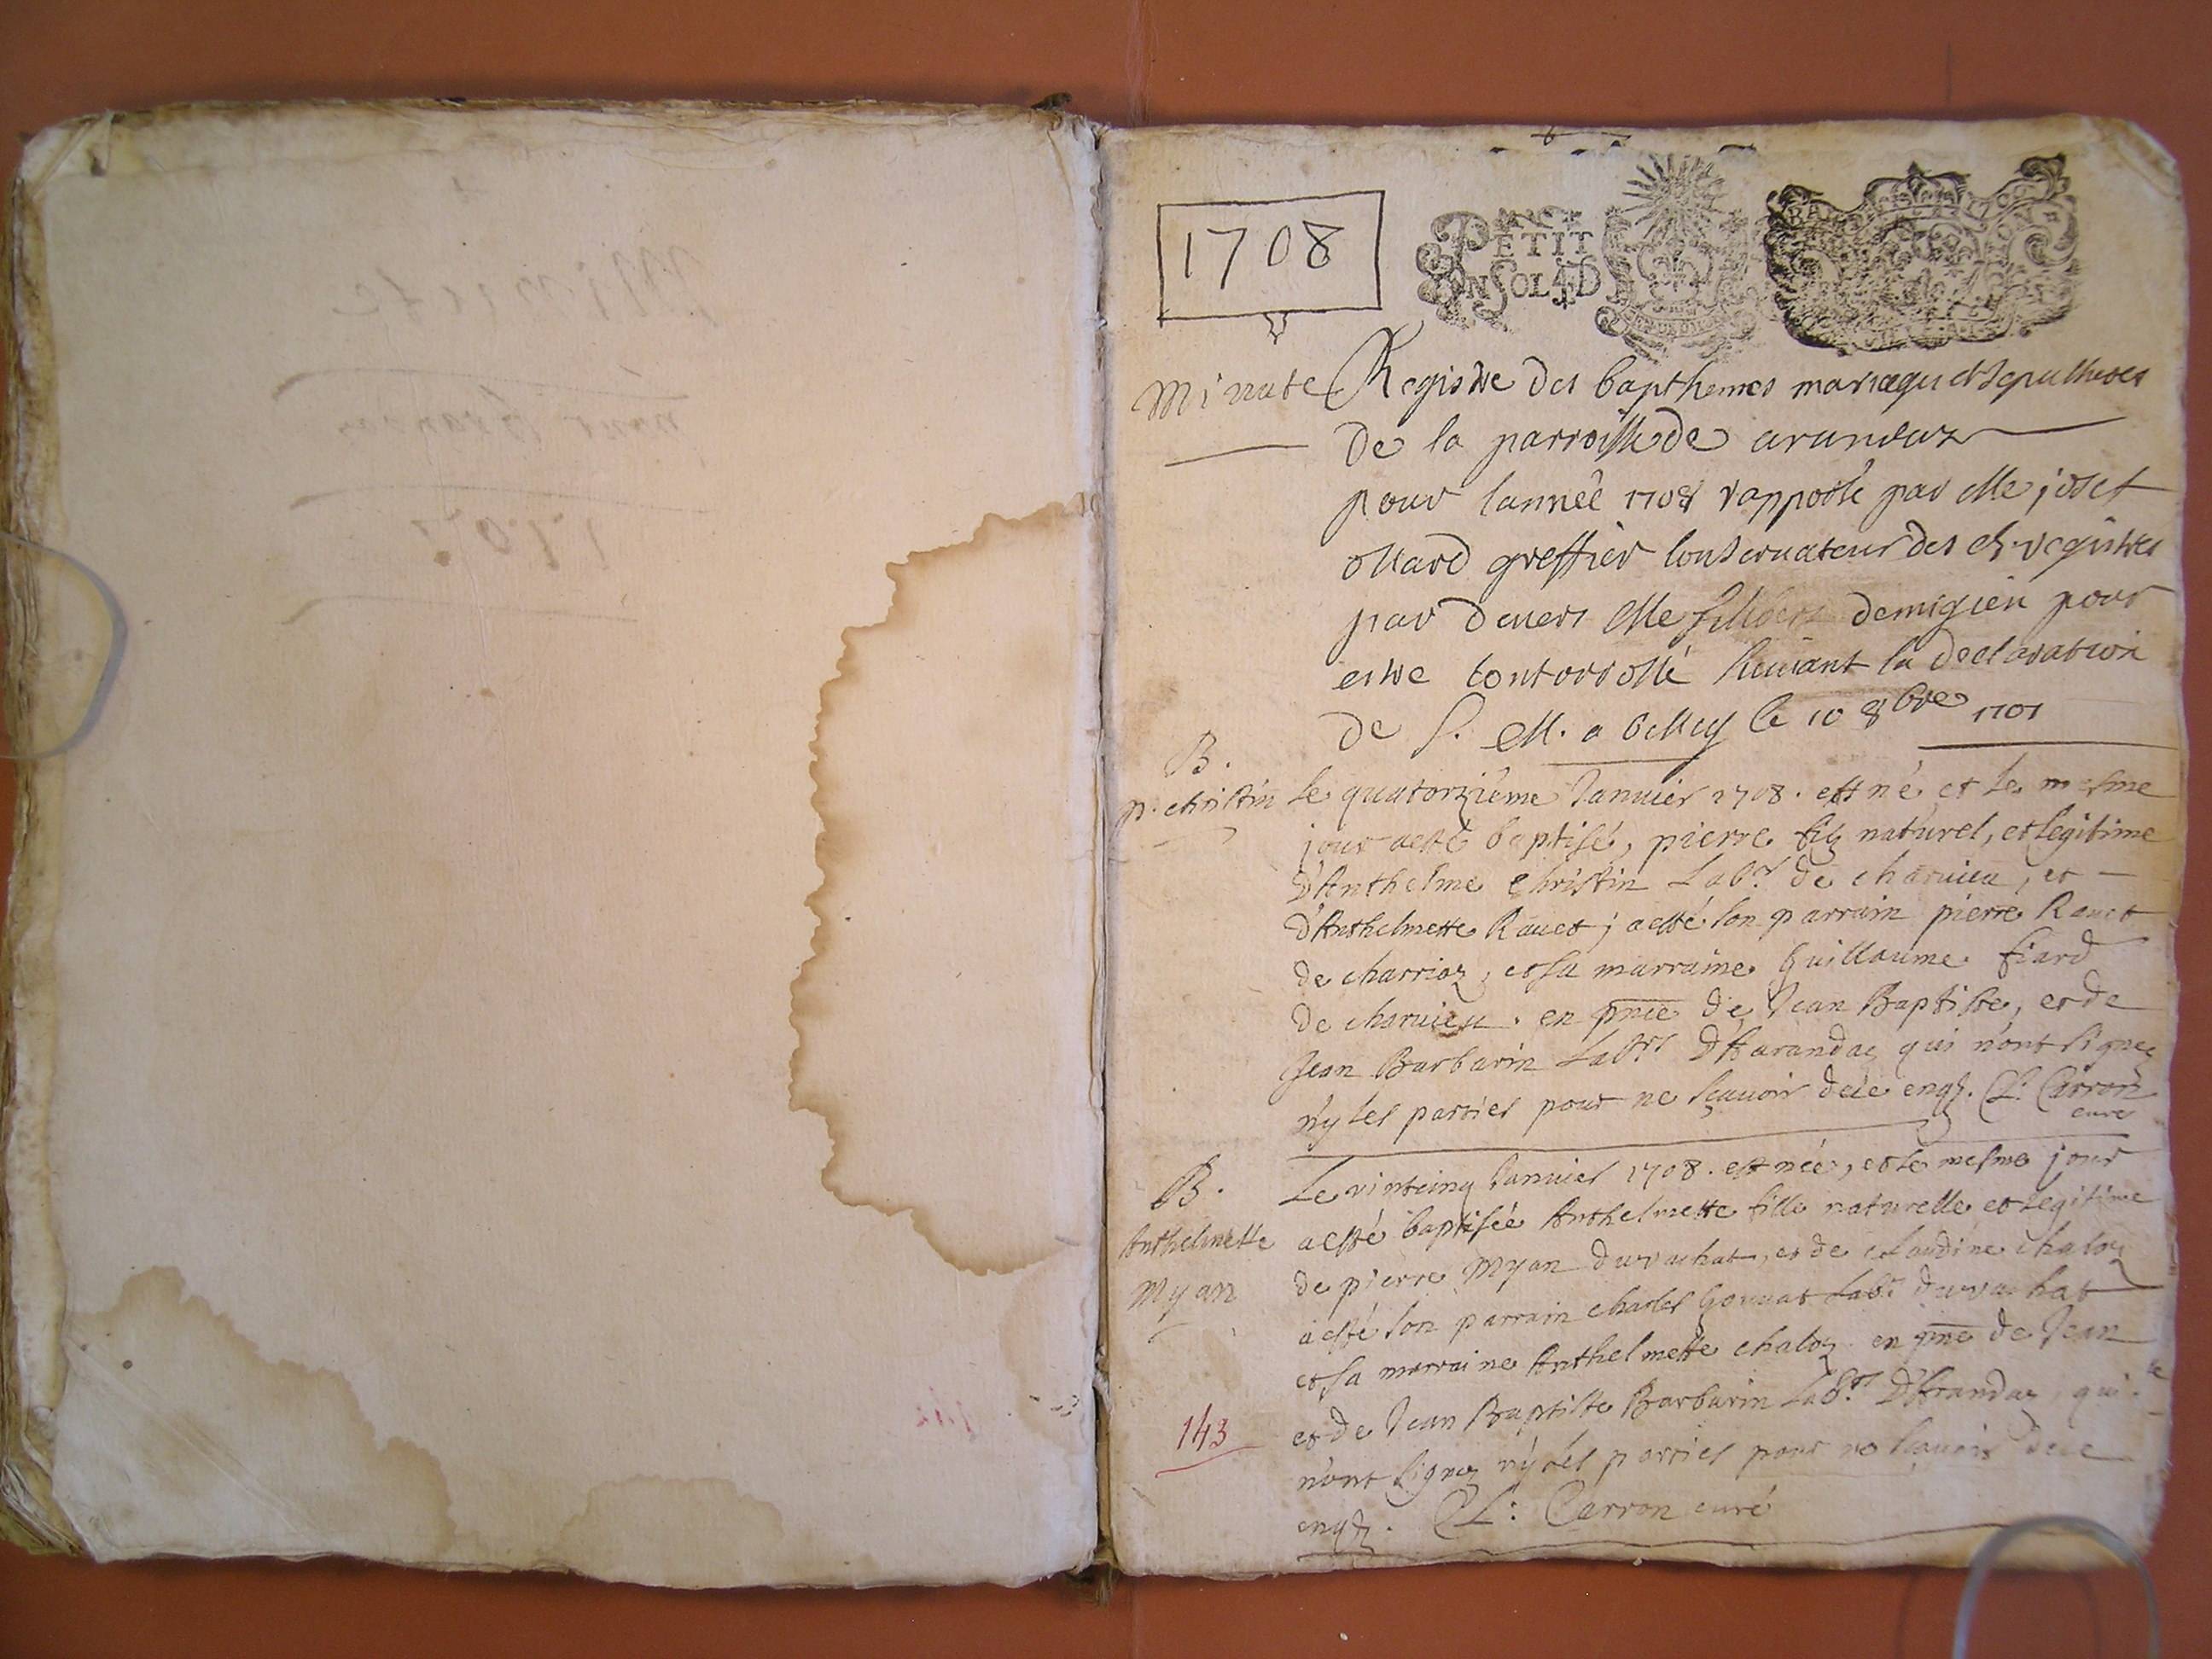 1708
PETIT
UN SOL 4 D
Minute
Registre des bapthemes mariages et sepultures
de la parroisse de arandaz
pour lannéé 1708 rapporté par Me joset
ollard greffier conservateur des registres
par devers Me demigieu pour
estre controrollé suivant la declaration
de S. M. a belley le 10 8bre 1707
B.
p. christin
Le quatorziéme Janvier 1708. est né et le mesme
jour a esté baptisé, pierre fils naturel, et legitime
d'Anthelme Christin Labr. de charvieu, et
d'Anthelmette Ravet; a esté son parrain pierre Ravet
de charrioz, et sa marraine Guillaume fiard
de charvieu. en pnce de Jean Baptiste, et de
Jean Barbarin Labrs D'harandaz qui n'ont signez
n'y les parties pour ne sçavoir de ce enqz. Cl: Carron
curé
B.
Anthelmette
Myan
Le vintcinq Janvier 1708. est néé, et le mesme jour
a esté baptiséé Anthelmette fille naturelle et legitime
de pierre Myan du vachat, et de claudine chaloz
a esté son parrain charles Gonnat Labr du vachat
et sa marraine Anthelmette chaloz en pnce de Jean
et de Jean Baptiste Barbarin Labrs D'Arandaz, qui
n'ont signez n'y les parties pour ne sçavoir de ce
enqz. Cl: Carron curé
143